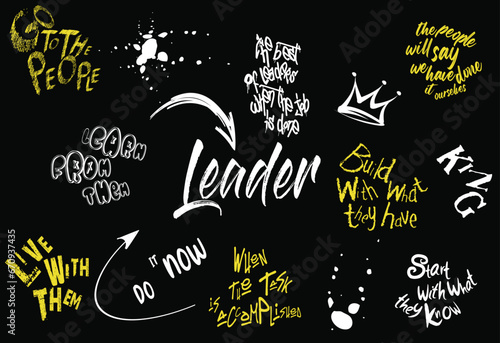 GO TO THE
PEOPLE
the best
of leaders
when the job
is done
the people
will say
we have done
it ourselves
LEARN
FROM
THEM
Leader
Build
With What
they have
KING
LIVE
WITH
THEM
DO IT NOW
WHEN
THE TASK
is accomplished
Start
with what
they know